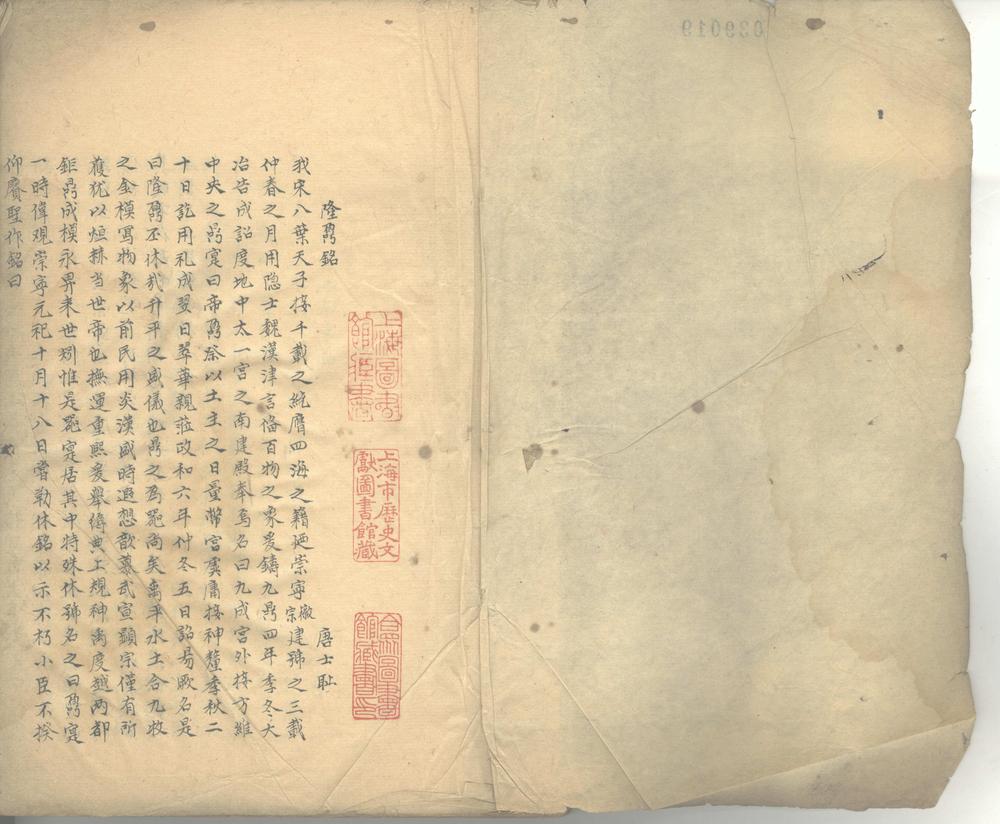 039019
隆鼐銘
唐士耻
我宋八葉天子接千載之統膺四海之籍廼崇寧徽宗建號之三載
仲春之月用隐士魏漢津言偹百物之象爰鑄九鼎四年季冬大
冶告成詔度地中太一宮之南建殿奉焉名曰九成宮外接方維
中央之鼎寔曰帝鼐祭以土王之日量幣宮架庸接神釐季秋二
十日訖用礼成翌日翠華親蒞政和六年仲冬五日詔易厥名是
曰隆鼐丕休哉升平之盛儀也鼎之為器尚矣禹平水土合九牧
之金模寫物象以前民用炎漢盛時遐想歆慕武宣顕宗僅有所
獲犹以烜赫当世帝也撫運重熙爰舉縟典上規神禹度越两都
鉅鼎成模永畀来世矧惟是器寔居其中特殊休號名之曰鼐寔
一時偉观崇寧元祀十月十八日嘗勒休銘以示不朽小臣不揆
仰賡聖作銘曰
上海圖書館藏書
上海市歷史文獻圖書館藏
合眾圖書館藏書印